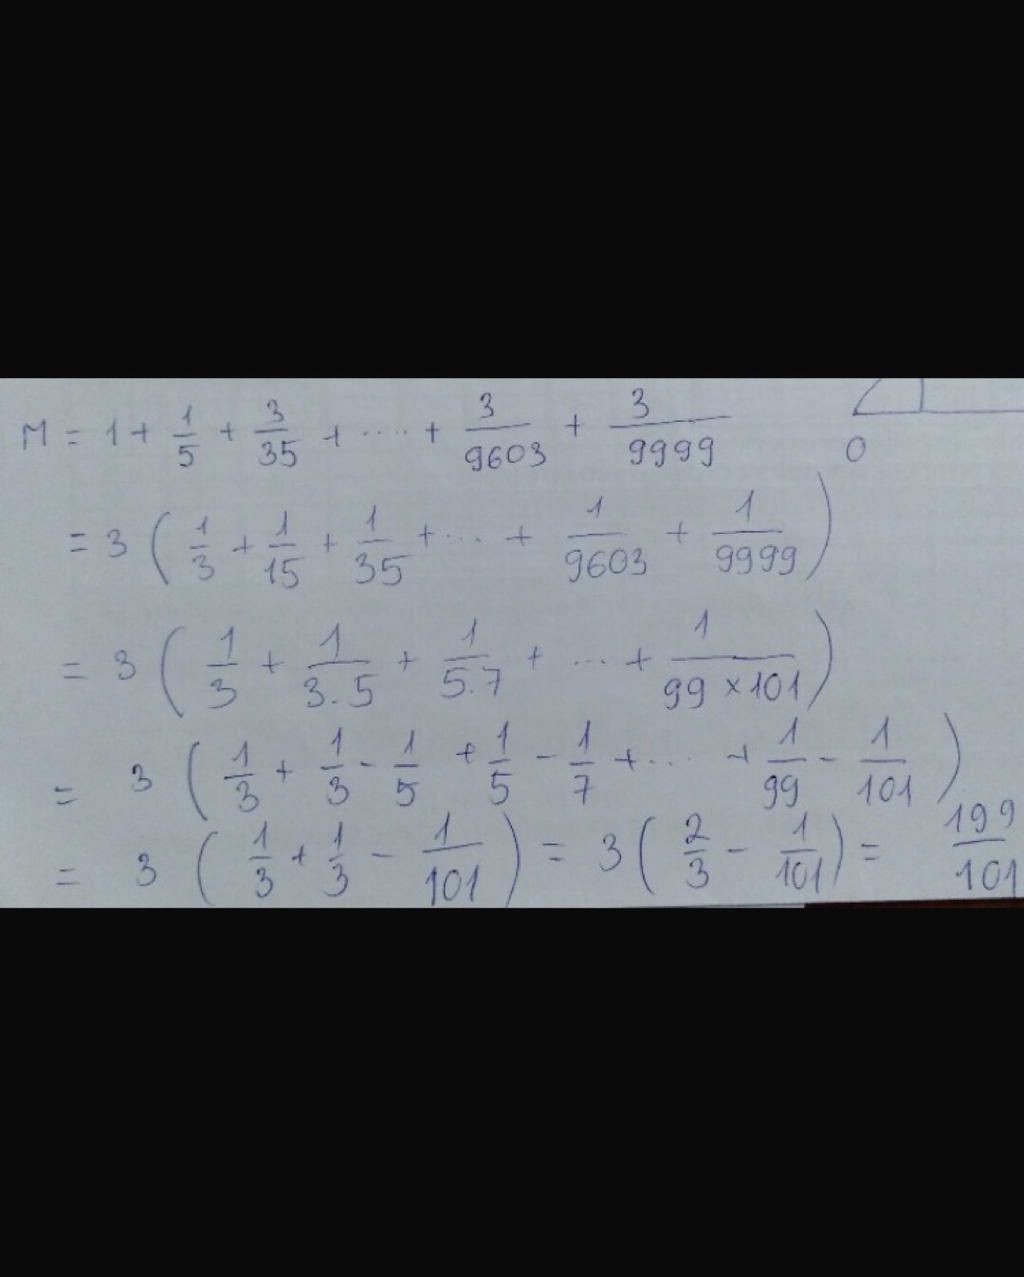 M = 1 + 1/5 + 3/35 + .... + 3/9603 + 3/9999
O
= 3 ( 1/3 + 1/15 + 1/35 + ... + 1/9603 + 1/9999 )
= 3 ( 1/3 + 1/3.5 + 1/5.7 + ... + 1/99 × 101 )
= 3 ( 1/3 + 1/3 - 1/5 + 1/5 - 1/7 + ... + 1/99 - 1/101 )
= 3 ( 1/3 + 1/3 - 1/101 ) = 3 ( 2/3 - 1/101 ) = 199/101